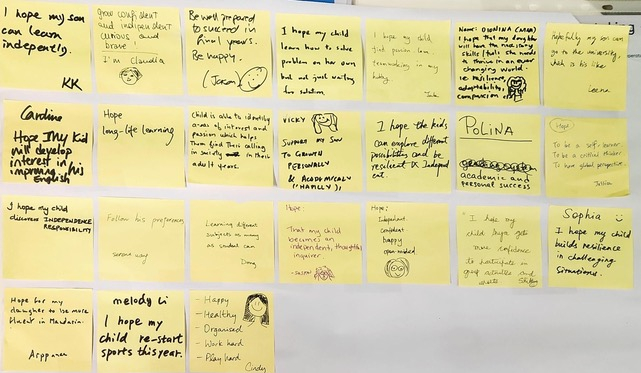 I hope my son
can learn
indepently.
KK
grow confident
and independent
curious and
brave!
I'm Claudia
Be well prepared
to succeed in
final years.
Be happy.
I hope my child
learn how to solve
problem on her own
but not just waiting
for solution.
I hope my child
find passion
teamworking in any
I hope that my daughter
will have the necessary
skills/tools she needs
to thrive in an ever
changing world.
i.e resilience,
adaptability,
compassion
Hopefully my son can
go to the university
which is his like
Leena
Caroline
Hope My Kid
will develop
interest in
improving his
English
Hope
long-life learning
Child is able to identify
areas of interest and
passion which helps
them find their calling
in society in their
adult years.
VICKY
SUPPORT MY SON
TO GROWTH
PERSONALLY
& ACADEMICALY
I hope the kids
can explore different
possibilities and be
resilient & Independ
ent.
POLINA
academic and
personal success
Hope:
To be a self-learner
To be a critical thinker
To have global perspective
I hope my child
discovers INDEPENDENCE
RESPONSIBILITY
Follow his preferences
second way
Learning different
subjects as many
as student can
Dong
Hope:
That my child
becomes an
independent, thoughtful
inquirer
Hope:
Independent
confident
happy
open-minded
I hope my
child gets
more confidence
to participate in
group activities and
Sophia
I hope my child
builds resilience
in challenging
situations.
Hope for my
daughter to be more
fluent in Mandarin.
Arppanan
melody Li
I hope my
child re-start
sports this year.
- Happy
- Healthy
- Organised
- Work hard
- Play hard
Cindy